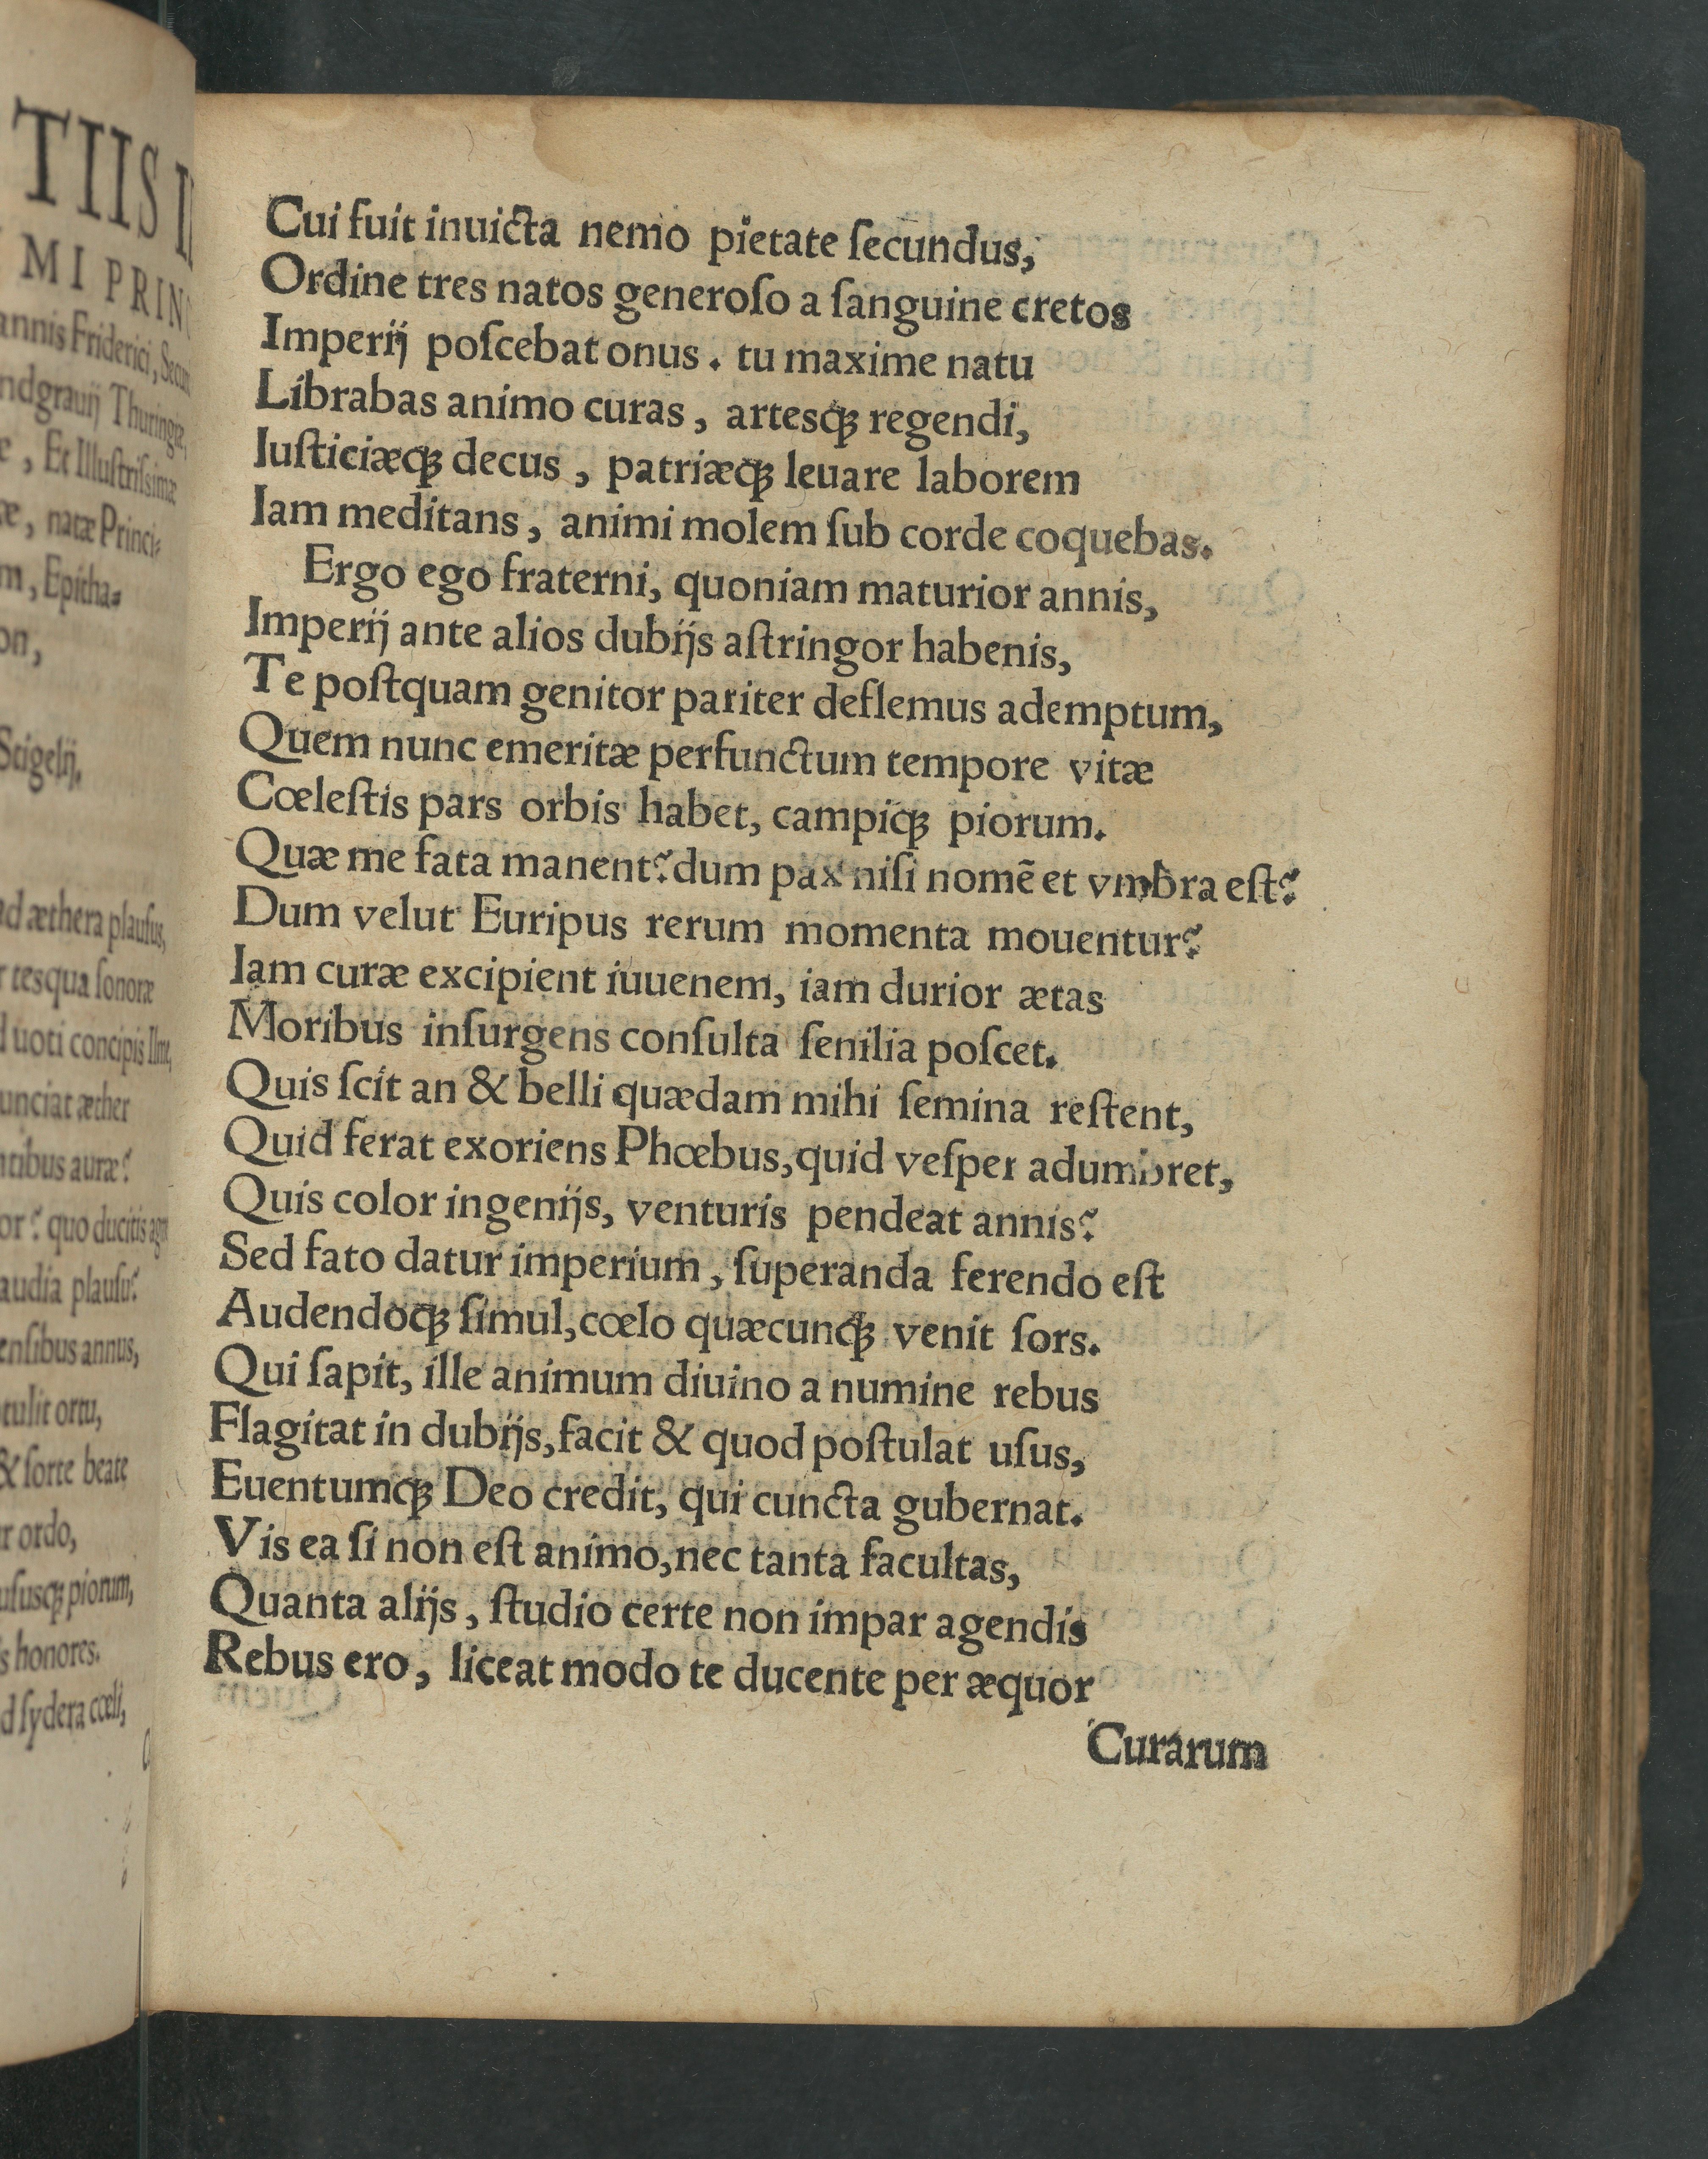 TIIS
MI PRIN
annis Friderici, Secun
ndgrauij Thuringiæ,
e, Et Illustrissimæ
æ, natæ Princi-
m, Epitha-
on,
Stigelij.
ad æthera plausus,
r tesqua sonoræ
d uoti concipis Ilme,
unciat æther
ntibus auræ?
or? quo ducitis agm
audia plausu?
ensibus annus,
tulit ortu,
& sorte beate
r ordo,
ususq́ꝫ piorum,
s honores.
d sydera cœli,
Cui fuit inuicta nemo pietate ſecundus,
Ordine tres natos generoſo a ſanguine cretos
Imperij poſcebat onus. tu maxime natu
Librabas animo curas, artesq́ꝫ regendi,
Iuſticiæq́ꝫ decus, patriæq́ꝫ leuare laborem
Iam meditans, animi molem ſub corde coquebas.
Ergo ego fraterni, quoniam maturior annis,
Imperij ante alios dubijs aſtringor habenis,
Te poſtquam genitor pariter deflemus ademptum,
Quem nunc emeritæ perfunctum tempore vitæ
Cœleſtis pars orbis habet, campiq́ꝫ piorum.
Quæ me fata manent? dum pax niſi nomẽ et vmbra eſt?
Dum velut Euripus rerum momenta mouentur?
Iam curæ excipient iuuenem, iam durior ætas
Moribus inſurgens conſulta ſenilia poſcet.
Quis ſcit an & belli quædam mihi ſemina reſtent,
Quid ferat exoriens Phœbus, quid veſper adumbret,
Quis color ingenijs, venturis pendeat annis?
Sed fato datur imperium, ſuperanda ferendo eſt
Audendoq́ꝫ ſimul, cœlo quæcunq́ꝫ venit ſors.
Qui ſapit, ille animum diuino a numine rebus
Flagitat in dubijs, facit & quod poſtulat uſus,
Euentumq́ꝫ Deo credit, qui cuncta gubernat.
Vis ea ſi non eſt animo, nec tanta facultas,
Quanta alijs, ſtudio certe non impar agendis
Rebus ero, liceat modo te ducente per æquor
Curarum